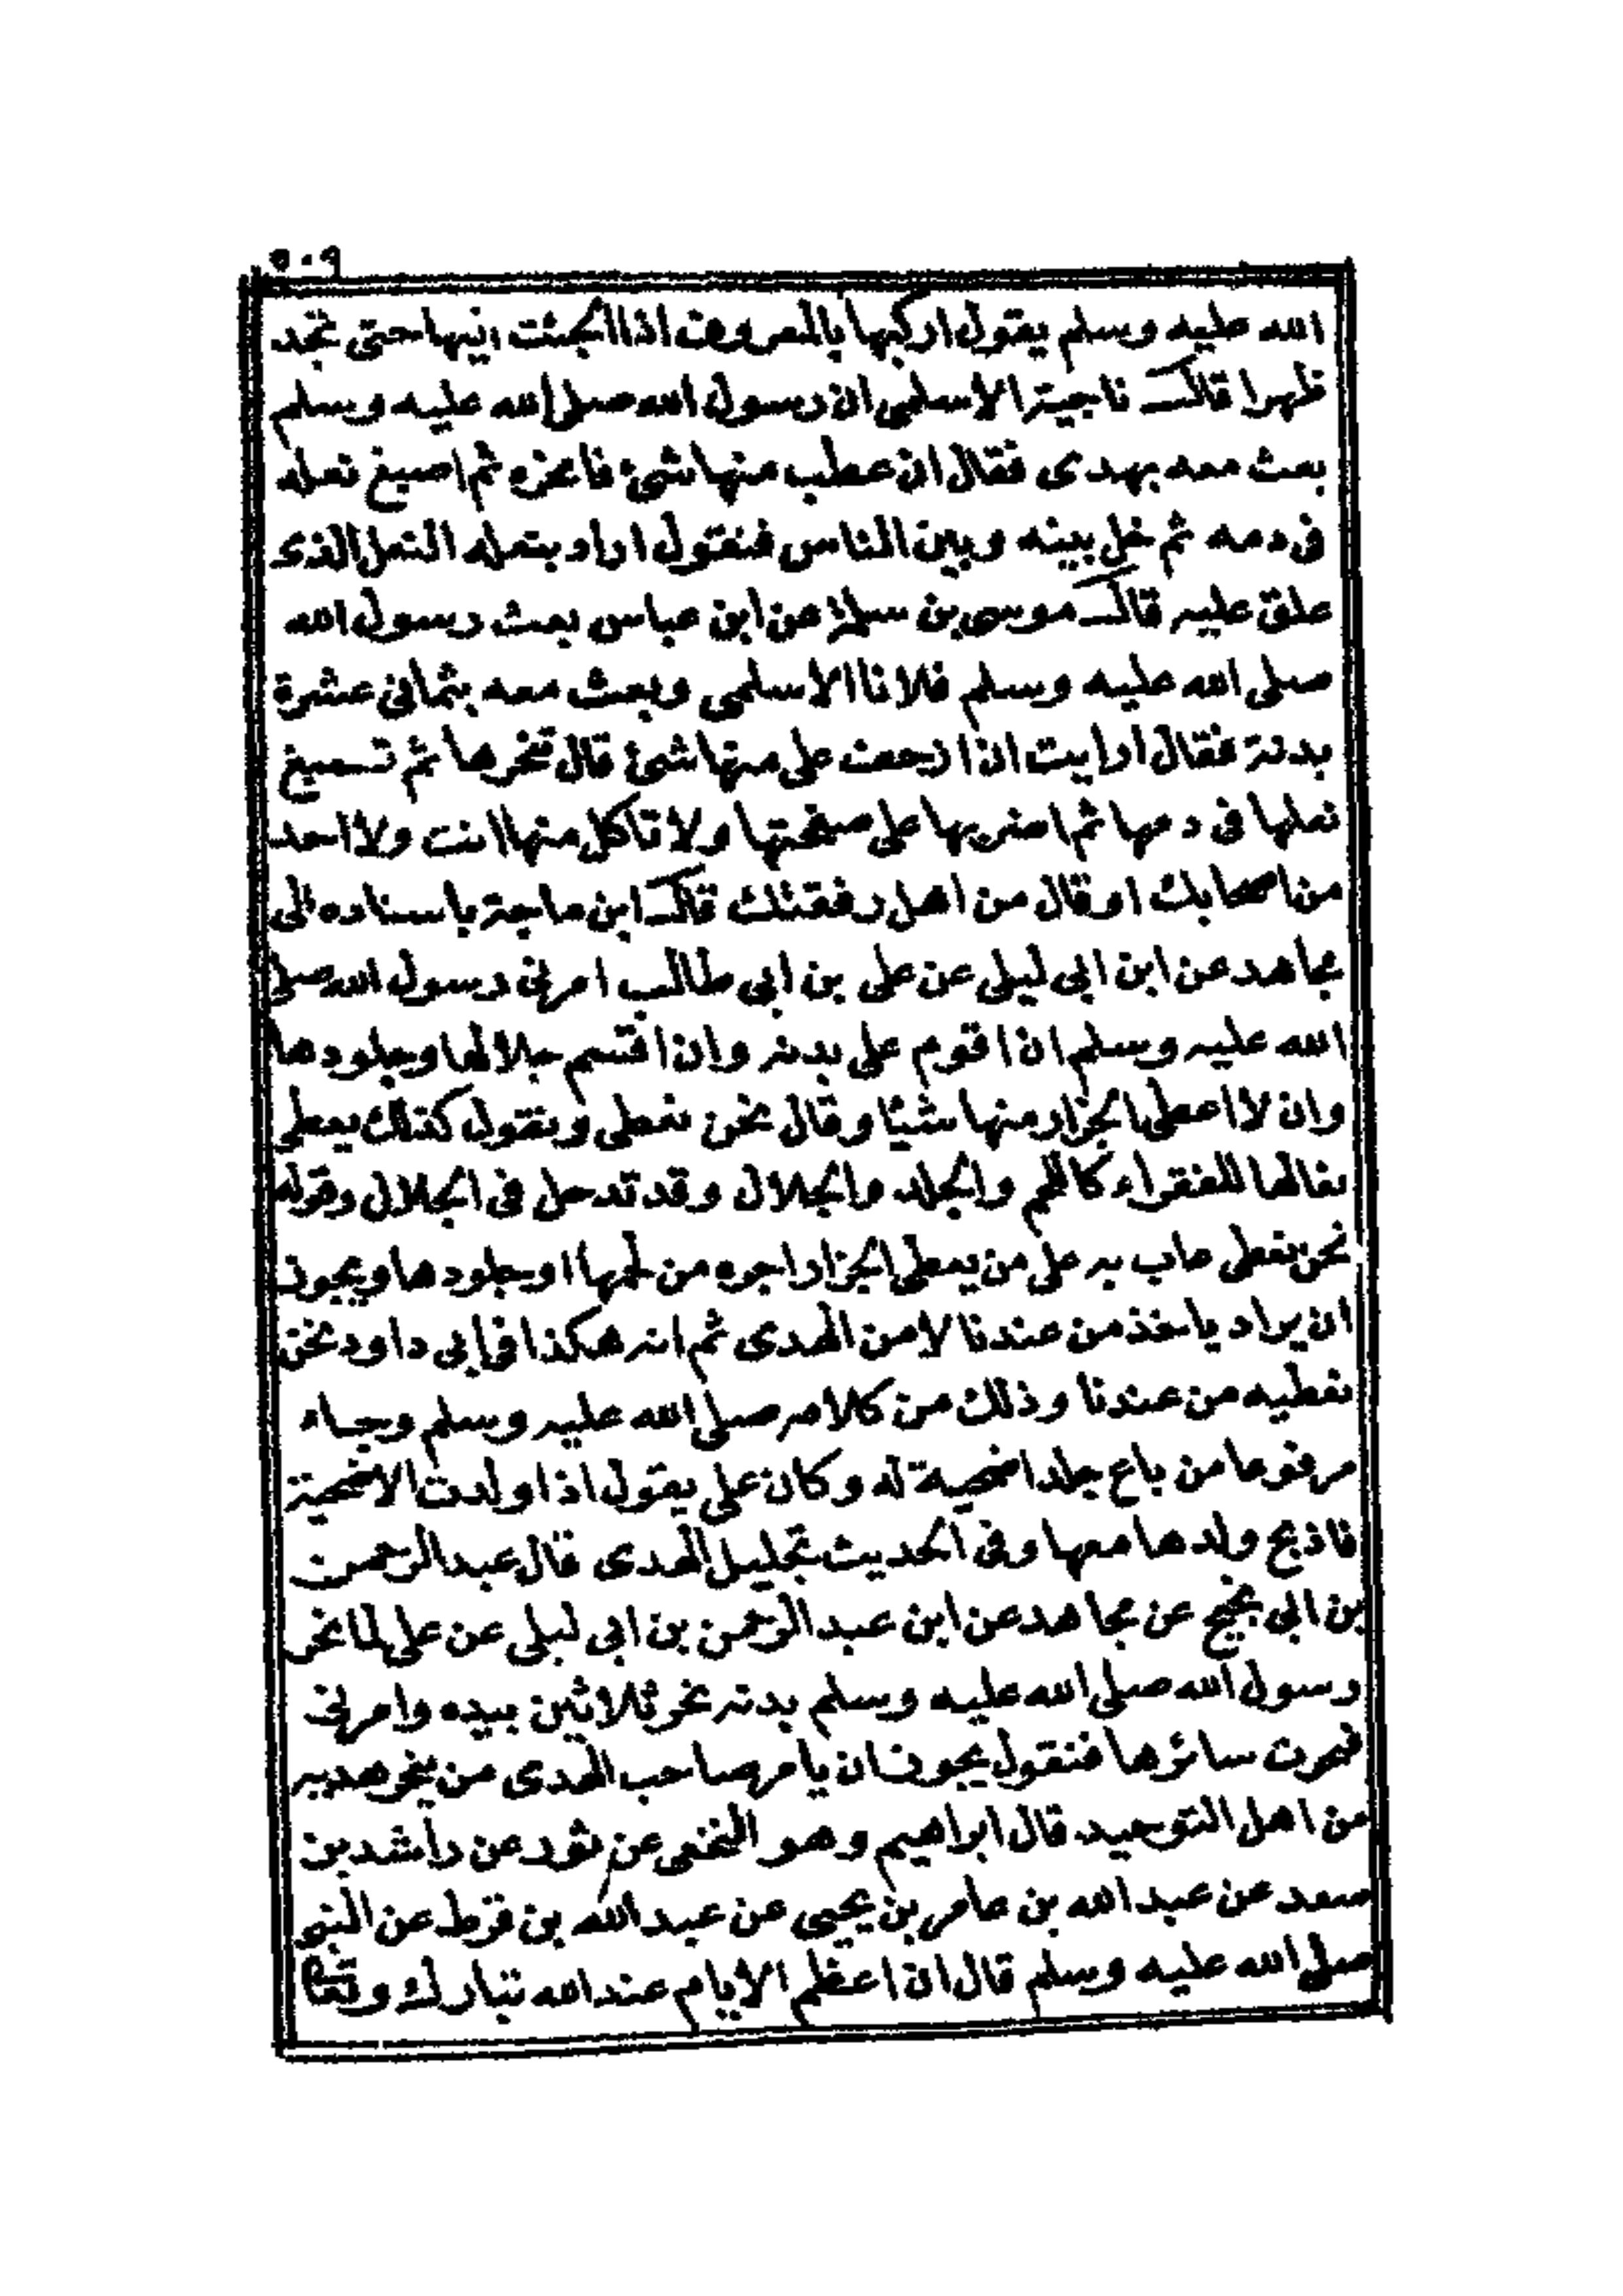 ٥٠٩
الله عليه وسلم يقول اركبها بالمعروف اذا الجئت اليها حتى تجد
ظهرا قال ناجية الاسلمى ان رسول الله صلى الله عليه وسلم
بعث معه بهدى فقال ان عطب منها شئ فانحره ثم اصبغ نعله
فى دمه ثم خل بينه وبين الناس فنقول اراد بنعله النعل الذى
علق عليه قال موسى بن سلمة عن ابن عباس بعث رسول الله
صلى الله عليه وسلم فلانا الاسلمى وبعث معه بثمانى عشرة
بدنة فقال ارايت ان ازحف على منها شئ قال تنحرها ثم تصبغ
نعلها فى دمها ثم اضربها على صفحتها ولا تاكل منها انت ولا احد
من اصحابك او قال من اهل رفقتك قال ابن ماجة باسناده الى
مجاهد عن ابن ابى ليلى عن على بن ابى طالب امرنى رسول الله صلى
الله عليه وسلم ان اقوم على بدنه وان اقسم جلالها وجلودها
وان لا اعطى الجزار منها شيئا وقال نحن نعطى ونقول كذلك يعطى
نعالها للفقراء كاللحم والجلد والجلال وقد تدخل فى الجلال وقوله
نحن نعطى جاب به على من يعطى الجزار اجره من لحمها او جلودها ويجوز
ان يراد ياخذ من عندنا لا من الهدى ثم انه هكذا فى ابى داود نحن
نعطيه من عندنا وذلك من كلامه صلى الله عليه وسلم وجاء
مرفوعا من باع جلد اضحية له وكان على يقول اذا ولدت الاضحية
فاذبح ولدها معها وفى الحديث تجليل الهدى قال عبد الرحمن
بن ابى نجيح عن مجاهد عن ابن عبد الرحمن بن ابى ليلى عن على لما نحر
رسول الله صلى الله عليه وسلم بدنه نحر ثلاثين بيده وامرنى
فنحرت سائرها فنقول يجوز ان يامر صاحب الهدى من ينحر هديه
من اهل التوحيد قال ابراهيم وهو النخعى عن ثور عن راشد بن
سعد عن عبد الله بن عامر بن يحيى عن عبد الله بن قرط عن النبى
صلى الله عليه وسلم قال ان اعظم الايام عند الله تبارك وتعالى